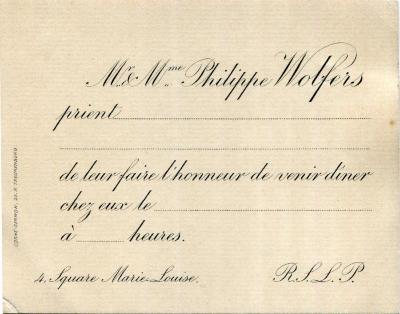 Mr & Mme Philippe Wolfers
prient
de leur faire l'honneur de venir dîner
chez eux le
à heures.
4, Square Marie-Louise. R.S.L.P.